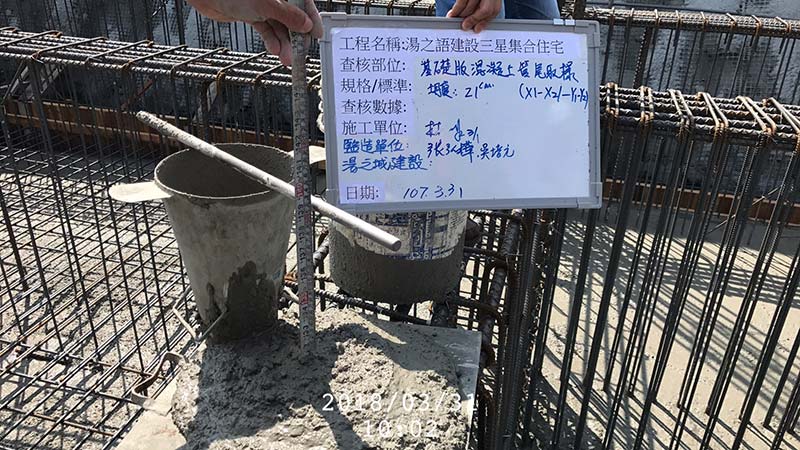 工程名稱:湯之語建設三星集合住宅
查核部位: 基礎版混凝土管尾取樣
規格/標準: 坍度: 21cm (X1-X2/-Y1-Y2)
查核數據:
施工單位:
監造單位: 張弘樺.吳培元
湯之城建設:
日期: 107.3.31
2018/03/31
10:02